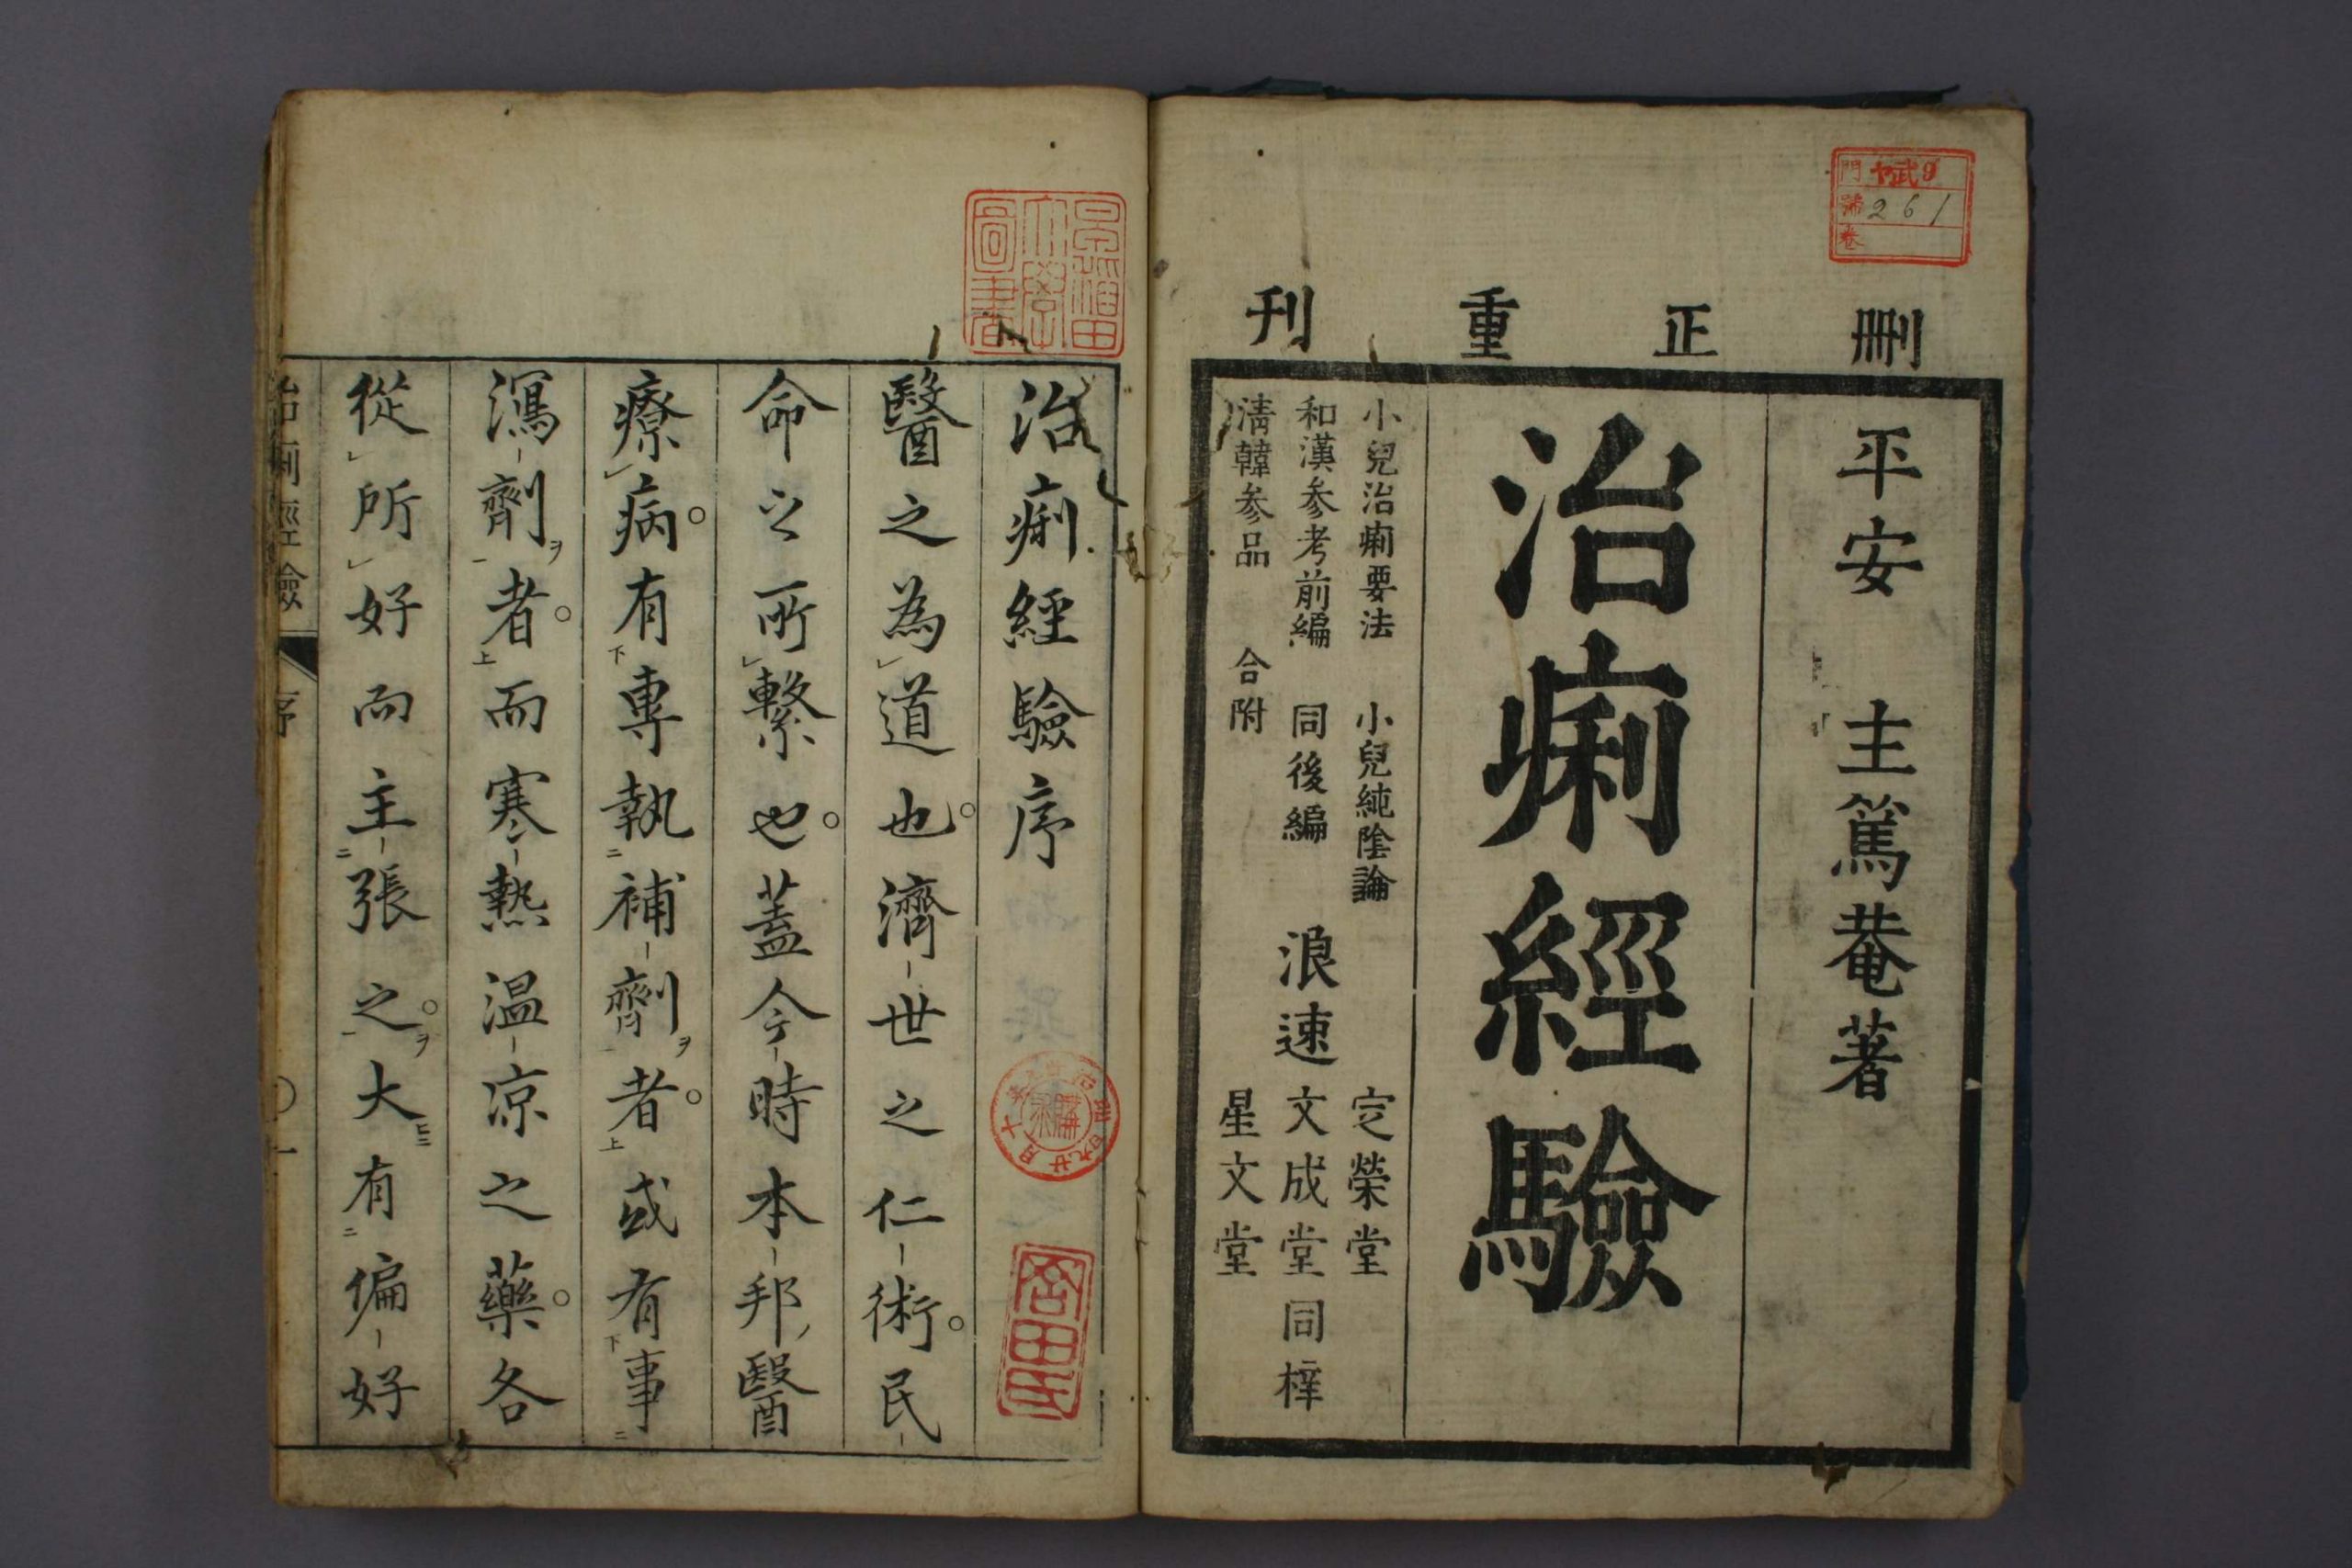 門 ヤ武9
號 261
卷
刪正重刊
平安 主篤菴著
治痢經驗
小兒治痢要法 小兒純陰論
和漢参考前編 同後編
淸韓参品 合附
浪速
定榮堂
文成堂同梓
星文堂
早稲田大學圖書
治痢經驗序
醫之為道也濟世之仁術民
命之所繫也蓋今時本邦ノ醫
療病有專執補劑ヲ者或有事
瀉劑ヲ者而寒熱温凉之藥各
從所好而主張之ヲ大ニ有偏好
治痢經驗 序 〇一